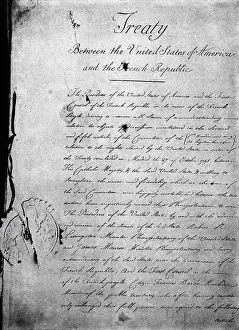 Treaty
Between the United States of America
and the French Republic
The President of the United States of America and the First
Consul of the French Republic in the name of the French
People desiring to remove all Source of misunderstanding
relative to objects of discussion mentioned in the Second
and fifth articles of the Convention of the
relative to the rights claimed by the United States in virtue of
the Treaty concluded at Madrid the 27 of October 1795, between
His Catholic Majesty & the Said United States, & willing to
Strengthen the union and friendship which at the time of
the Said Convention was happily reestablished between the two
nations have respectively named their Plenipotentiaries to wit
The President of the United States, by and with the advice
and consent of the Senate of the said States, Robert R.
Livingston Minister Plenipotentiary of the United States
and James Monroe Minister Plenipotentiary and Envoy
extraordinary of the Said States near the Government of the
French Republic; And the First Consul in the name
of the French people, Citizen Francis Barbé Marbois
Minister of the public treasury who after having respectively
exchanged their full powers have agreed to the following